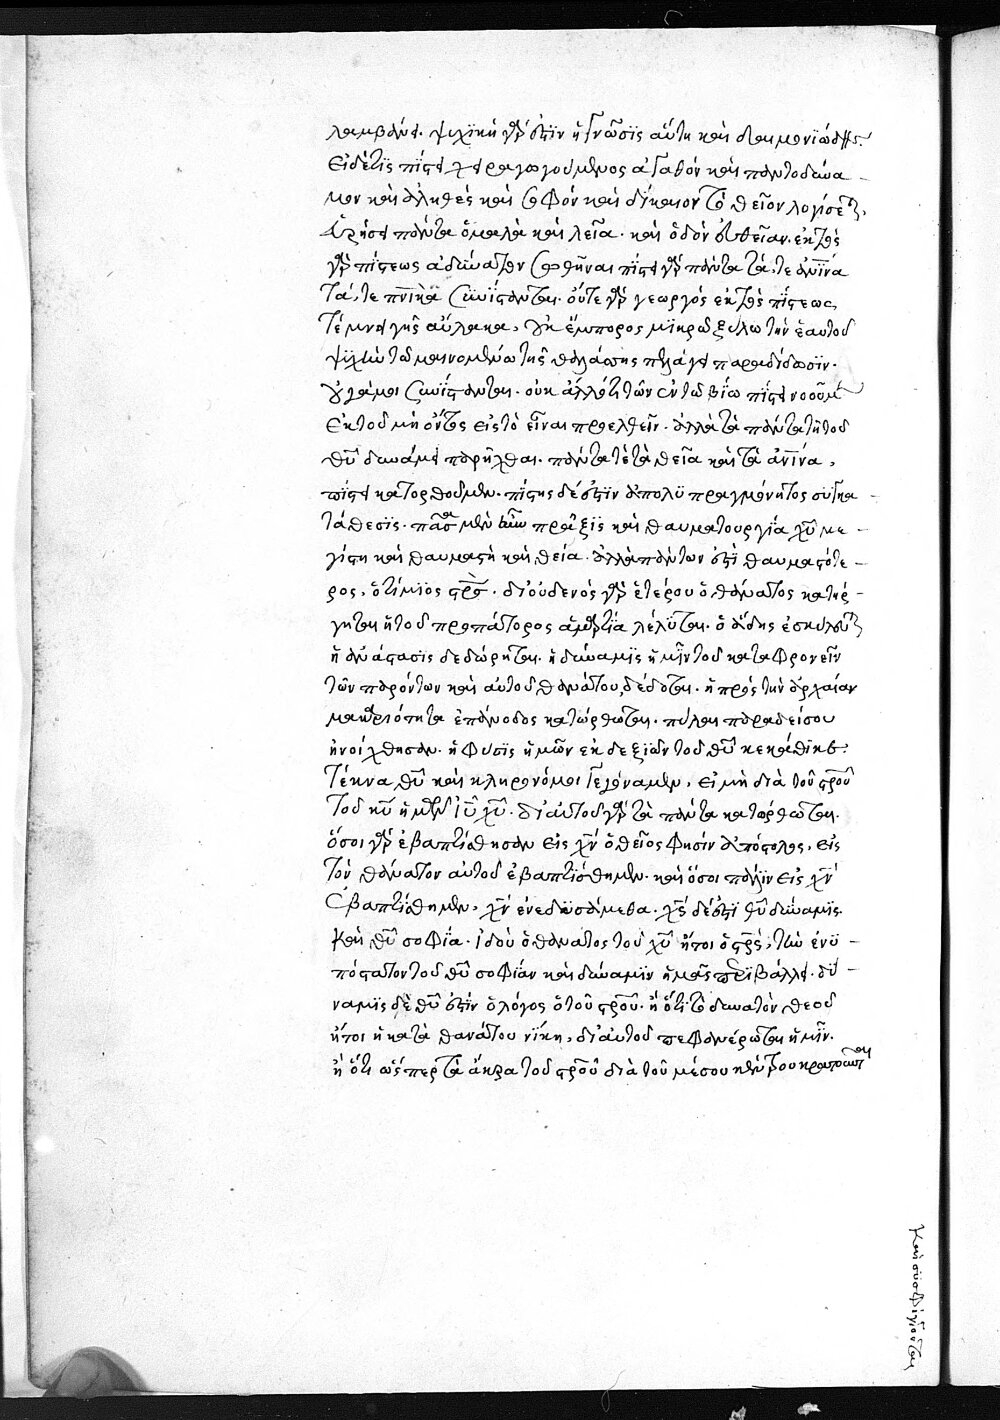 λαμβάνει. ψυχικὴ γάρ ἐστιν ἡ γνῶσις αὕτη καὶ δαιμονιώδης.
εἰ δέ τις πίστει χειραγωγούμενος ἀγαθὸν καὶ παντοδύνα-
μον καὶ ἀληθὲς καὶ σοφὸν καὶ δίκαιον τὸ θεῖον λογίσεται,
εὑρήσει πάντα ὁμαλὰ καὶ λεῖα. καὶ ὁδὸν εὐθεῖαν. ἐκτὸς
γὰρ πίστεως ἀδύνατον σωθῆναι πίστει γὰρ πάντα τά, τε ἀνινα
τά, τε πνικὰ συνίστανται. οὔτε γὰρ γεωργὸς ἐκτὸς πίστεως
τέμνει γῆς αὔλακα, οὐκ ἔμπορος μικρῷ ξύλω τὴν ἑαυτοῦ
ψυχὴν τῶ μαινομένω τῆς θαλάσσης πελάγει παραδίδωσιν.
οὐ γάμοι συνίστανται. οὐκ ἄλλό τι τῶν ἐν τῶ βίω πίστει νοοῦμεν
ἐκ τοῦ μὴ ὄντος εἰς τὸ εἶναι προελθεῖν. ἀλλὰ τὰ πάντα τῆ τοῦ
θυ δυνάμει παρῆχθαι. πάντα τὲ τὰ θεῖα καὶ τὰ ἀνινα,
πίστει κατορθοῦμεν. πίστις δέ ἐστιν ἀπολυπραγμόνητος συγκα-
τάθεσις. πᾶσα μὲν οὖν πρᾶξις καὶ θαυματουργία χυ με-
γίστη καὶ θαυμαστὴ καὶ θεία. ἀλλὰ πάντων ἐστὶ θαυμαστότε-
ρος, ὁ τίμιος στρς. δι οὐδενὸς γὰρ ἑτέρου ὁ θάνατος κατήρ-
γηται ἡ τοῦ προπάτορος ἁμαρτία λέλυται. ὁ ἅδης ἐσκύλευται
ἡ ἀνάστασις δεδώρηται. ἡ δύναμις ἡμῖν τοῦ καταφρονεῖν
τῶν παρόντων καὶ αὐτοῦ θανάτου, δέδοται. ἡ πρὸς τὴν ἀρχαίαν
μακαριότητα ἐπάνοδος κατώρθωται. πύλαι παραδείσου
ἠνοίχθησαν. ἡ φύσις ἡμῶν ἐκ δεξιῶν τοῦ θυ κεκάθικε.
τέκνα θυ καὶ κληρονόμοι γεγόναμεν, εἰ μὴ διὰ τοῦ στρου
τοῦ κυ ἡμῶν ιυ χυ. δι αὐτοῦ γὰρ τὰ πάντα κατώρθωται.
ὅσοι γὰρ ἐβαπτίσθησαν εἰς χν ὁ θεῖος φησὶν ἀπόστολος, εἰς
τὸν θάνατον αὐτοῦ ἐβαπτίσθημεν. καὶ ὅσοι πάλιν εἰς χν
ἐβαπτίσθημεν, χν ἐνεδυσάμεθα. χς δέ ἐστι θυ δύναμις.
καὶ θυ σοφία. ἰδοὺ ὁ θάνατος τοῦ χυ ἤτοι ὁ στρς, τὴν ἐνυ-
πόστατον τοῦ θυ σοφίαν καὶ δύναμιν ἡμᾶς περιβάλλει. δύ-
ναμις δὲ θυ ἐστὶν ὁ λόγος ὁ τοῦ στρου. ἢ ὅτι τὸ δυνατὸν θεοῦ
ἤτοι ἡ κατὰ θανάτου νίκη, δι αὐτοῦ πεφανέρωται ἡμῖν.
ἢ ὅτι ὥσπερ τὰ ἄκρα τοῦ στρου διὰ τοῦ μέσου κέντρου κρατοῦνται
καὶ συσφίγγονται